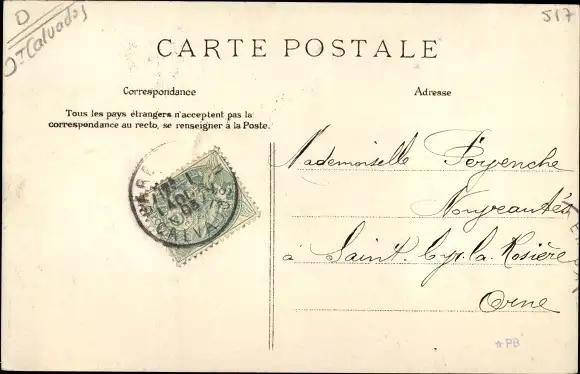 D
Dt Calvados
517
CARTE POSTALE
Correspondance
Adresse
Tous les pays étrangers n'acceptent pas la
correspondance au recto, se renseigner à la Poste.
CALVADOS
Mademoiselle
Nouveautés
à Saint. Cyr. la. Rosière
Orne
PB